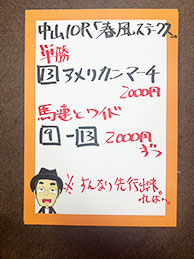 中山10R「春風ステークス」
単勝
13 アメリカンマーチ
2000円
馬連とワイド
9-13 2000円
ずつ
※すんなり先行出来れば…